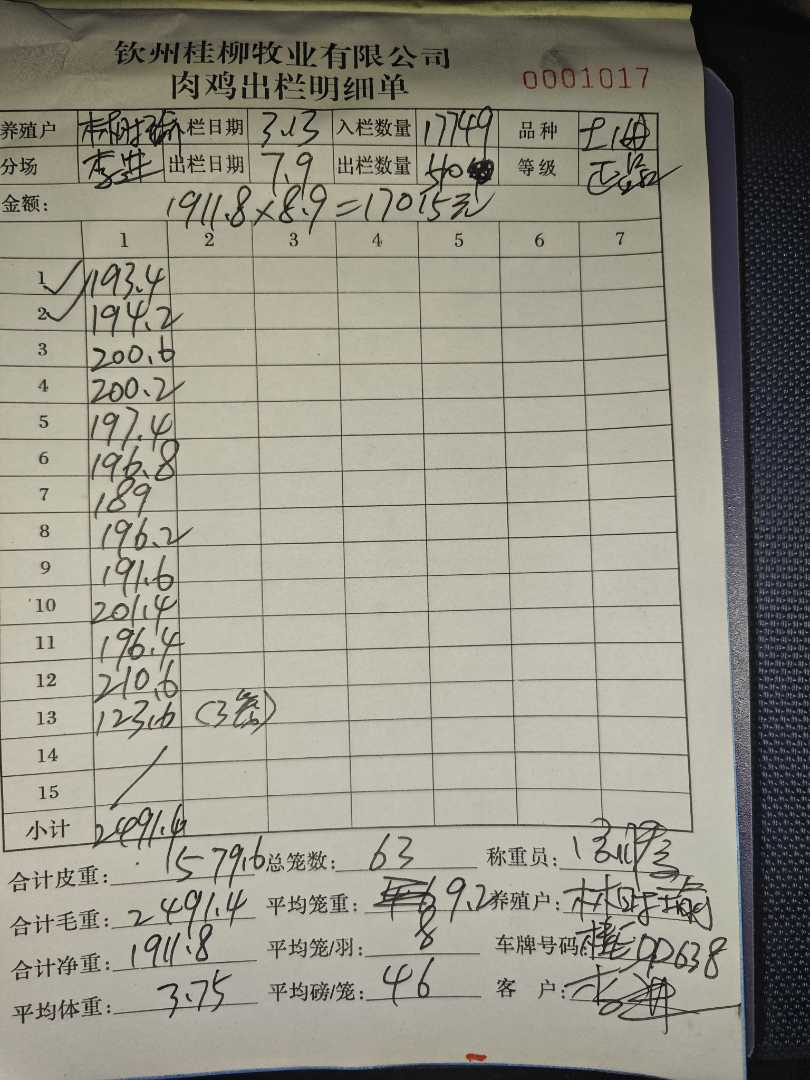 钦州桂柳牧业有限公司
肉鸡出栏明细单 0001017
养殖户 入栏日期 3.13 入栏数量 17749 品种
分场 出栏日期 7.9 出栏数量 等级 正品
金额: 1911.8×8.9=17015元
1 2 3 4 5 6 7
1 193.4
2 194.2
3 200.6
4 200.2
5 197.4
6 196.8
7 189
8 196.2
9 191.6
10 201.4
11 196.4
12 210.6
13 123.6 (3笼)
14
15
小计 2491.4
合计皮重: 1579.6 总笼数: 63 称重员:
合计毛重: 2491.4 平均笼重: 9.2 养殖户:
合计净重: 1911.8 平均笼/羽: 8 车牌号码: DD638
平均体重: 3.75 平均磅/笼: 46 客户: